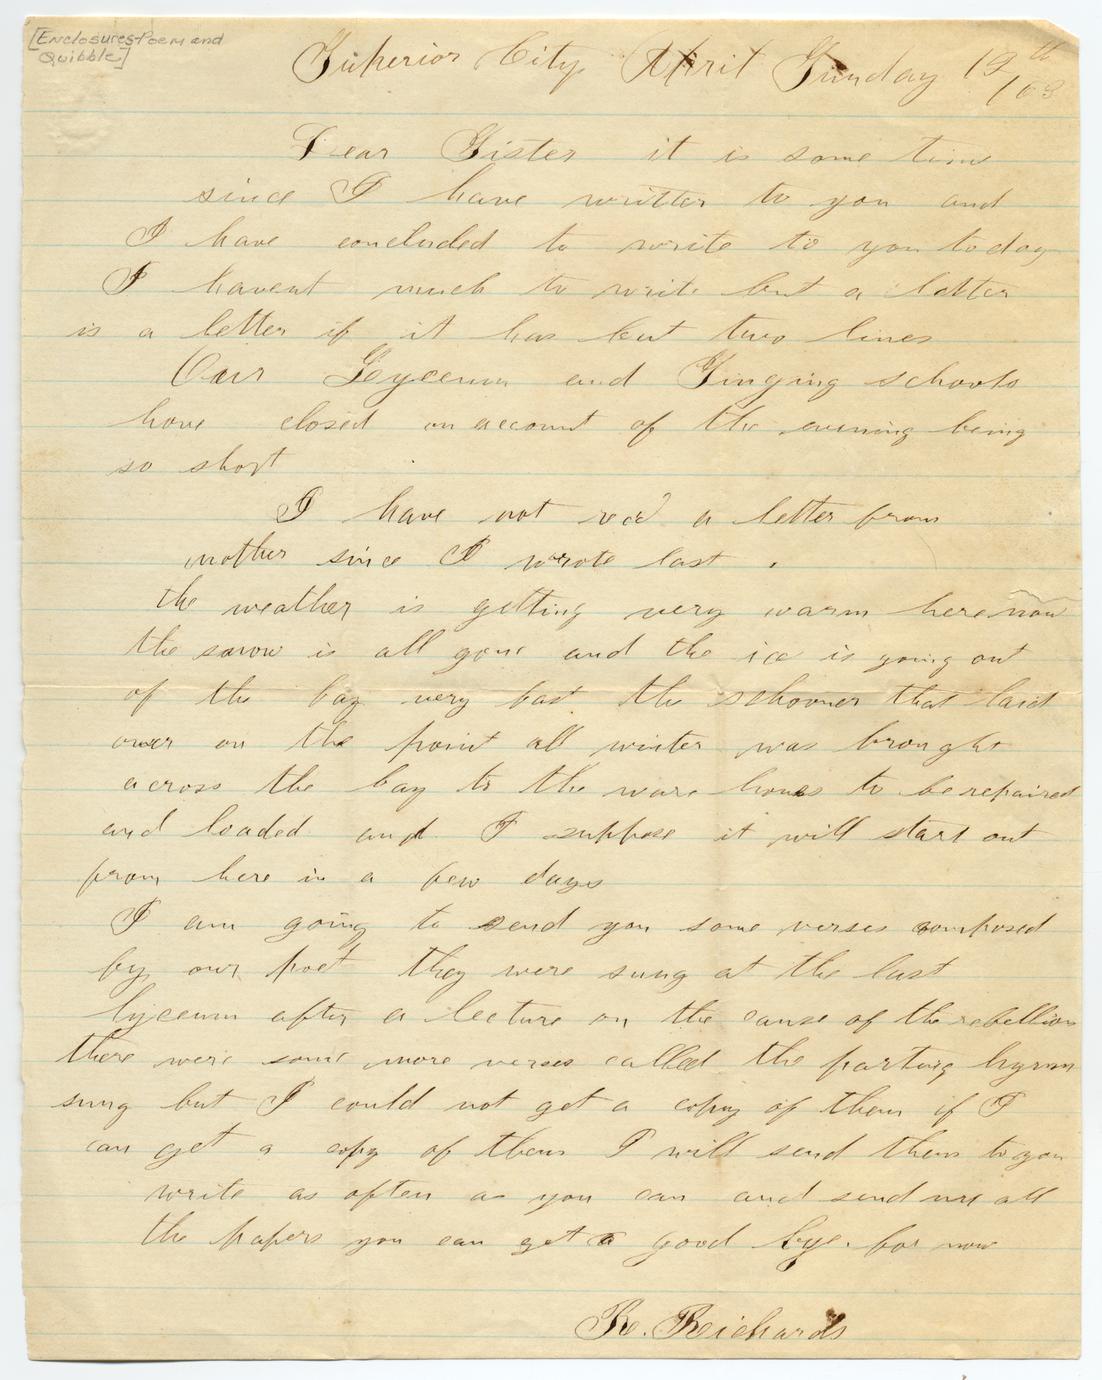 [Enclosures-Poem and
Quibble]
Superior City, April Sunday 19th
/63
Dear Sister it is some time
since I have written to you and
I have concluded to write to you today
I havent much to write but a letter
is a letter if it has but two lines
Our Lyceum and Singing schools
have closed on account of the evening being
so short
I have not recd a letter from
mother since I wrote last .
the weather is getting very warm here now
the snow is all gone and the ice is going out
of the bay very fast the schooner that laid
over on the point all winter was brought
across the bay to the ware house to be repaired
and loaded and I suppose it will start out
from here in a few days
I am going to send you some verses composed
by our poet they were sung at the last
lyceum after a lecture on the cause of the rebellion
there were some more verses called the parting hymn
sung but I could not get a copy of them if I
can get a copy of them I will send them to you
write as often as you can and send me all
the papers you can get a good bye. for now
R. Richards